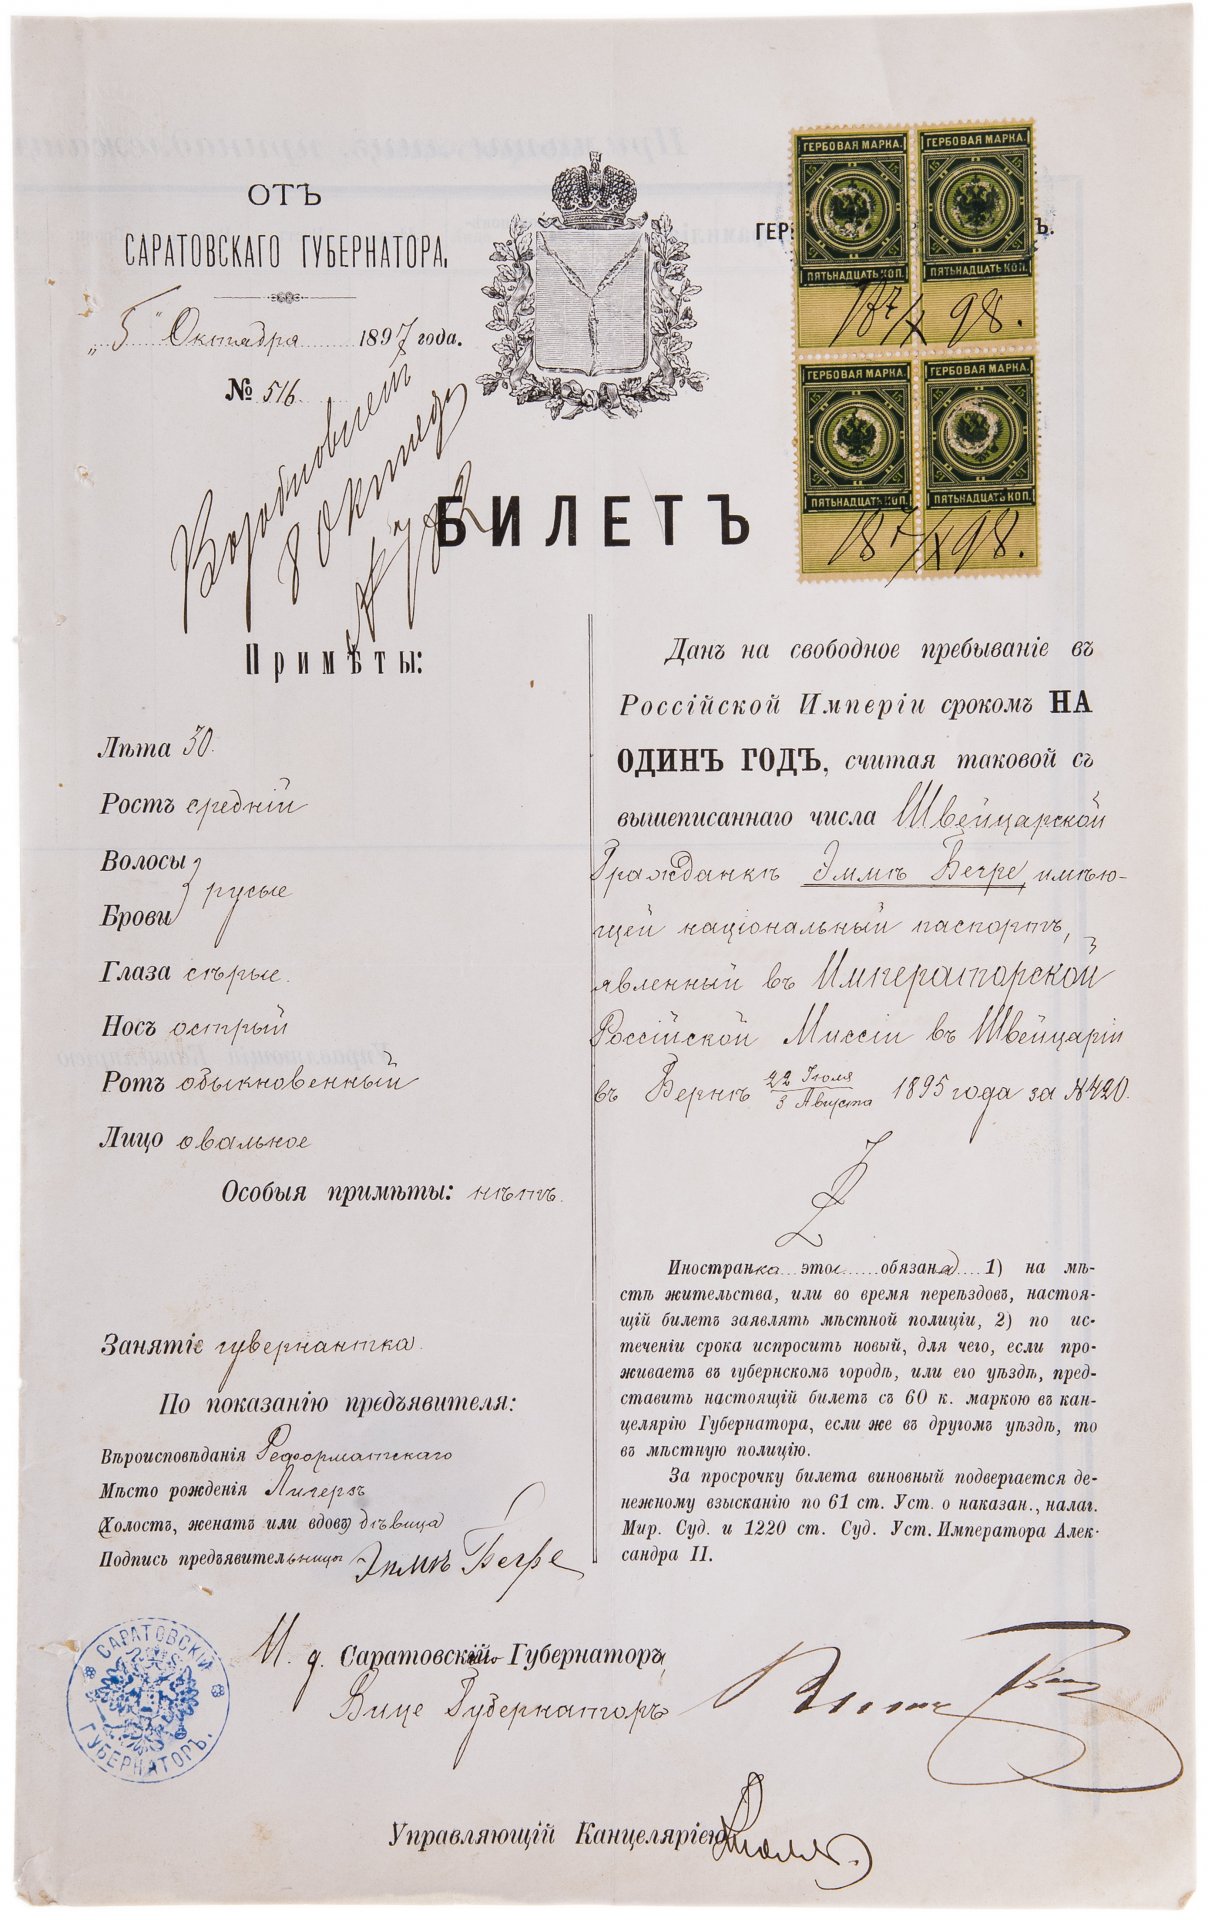 ОТЪ
САРАТОВСКАГО ГУБЕРНАТОРА,
„5" Октября 1897 года.
№ 516
Возобновленъ
8 Октяб
№ 782
ГЕР Ъ.
ГЕРБОВАЯ МАРКА. ГЕРБОВАЯ МАРКА.
15 15 15 15
ПЯТЬНАДЦАТЬ КОП. ПЯТЬНАДЦАТЬ КОП.
18 7/X 98.
ГЕРБОВАЯ МАРКА. ГЕРБОВАЯ МАРКА.
15 15 15 15
ПЯТЬНАДЦАТЬ КОП. ПЯТЬНАДЦАТЬ КОП.
18 7/X 98.
БИЛЕТЪ
Примѣты:
Лѣта 30.
Ростъ средній
Волосы
русые
Брови
Глаза сѣрые.
Носъ острый
Ротъ обыкновенный
Лицо овальное
Особыя примѣты: нѣтъ.
Занятіе гувернантка.
По показанію предъявителя:
Вѣроисповѣданія Реформатскаго
Мѣсто рожденія Лигерзъ
Холостъ, женатъ или вдовъ дѣвица
Подпись предъявительницы Эммѣ Бегре
Данъ на свободное пребываніе въ
Россійской Имперіи срокомъ НА
ОДИНЪ ГОДЪ, считая таковой съ
вышеписаннаго числа Швейцарской
Гражданкѣ Эммѣ Бегре, имѣю-
щей національный паспортъ,
явленный въ Императорской
Россійской Миссіи въ Швейцаріи
въ Бернѣ 22 Іюля / 3 Августа 1895 года за № 420.
Иностранка эта обязана 1) на мѣ-
стѣ жительства, или во время переѣздовъ, настоя-
щій билетъ заявлять мѣстной полиціи, 2) по ис-
теченіи срока испросить новый, для чего, если про-
живаетъ въ губернскомъ городѣ, или его уѣздѣ, пред-
ставить настоящій билетъ съ 60 к. маркою въ кан-
целярію Губернатора, если же въ другомъ уѣздѣ, то
въ мѣстную полицію.
За просрочку билета виновный подвергается де-
нежному взысканію по 61 ст. Уст. о наказан., налаг.
Мир. Суд. и 1220 ст. Суд. Уст. Императора Алек-
сандра II.
САРАТОВСКІЙ
ГУБЕРНАТОРЪ.
И. д. Саратовскаго Губернатора,
Вице Губернаторъ
Управляющій Канцеляріею